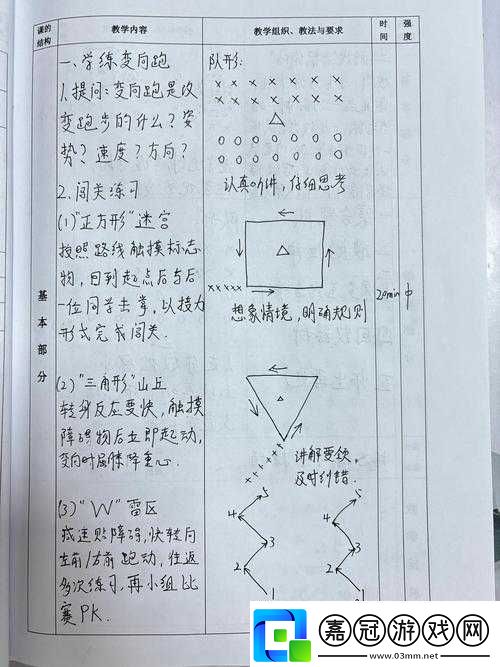 课的结构
教学内容
教学组织、教法与要求
时间
强度
一、学练变向跑
1.提问:变向跑是改
变跑步的什么?姿
势?速度?方向?
2.闯关练习
(1)"正方形"迷宫
按照路线触摸标志
物,回到起点后与后
一位同学击掌,以接力
形式完成闯关.
(2)"三角形"山丘
转身反应要快,触摸
障碍物后立即起动,
变向时屈膝降重心.
(3)"W"雷区
减速贴障碍,快转向
左前/右前跑动,往返
多次练习,再小组比
赛PK.
基本部分
队形:
× × × × × × ×
× × × × × × ×
○ ○ ○ ○ ○ ○ ○
○ ○ ○ ○ ○ ○ ○
认真听讲,仔细思考
×××××
想象情境,明确规则
20min
中
××××××
讲解要领,
及时纠错.
5
4
3
2
1
5
4
3
2
1
嘉冠游戏网
www.03mm.net